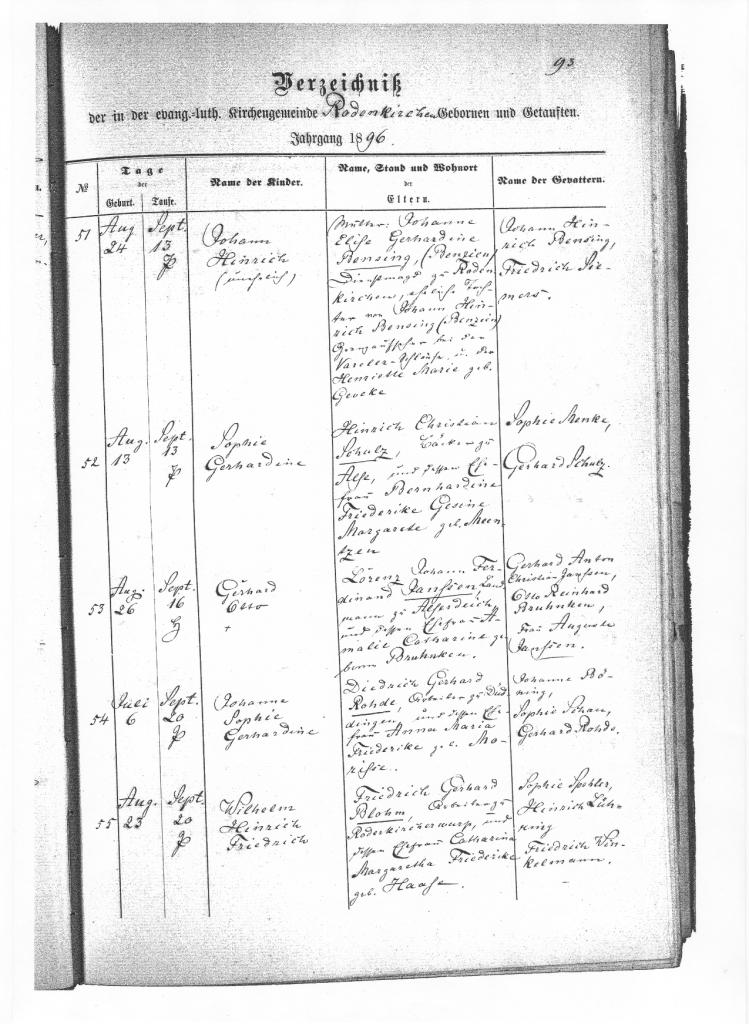 93
Verzeichniß
der in der evang.-luth. Kirchengemeinde Rodenkirchen Gebornen und Getauften.
Jahrgang 1896.
№
Tage
der
Geburt. Taufe.
Name der Kinder.
Name, Stand und Wohnort
der
Eltern.
Name der Gevattern.
51
Aug
24
Sept.
13
Johann
Hinrich
(unehelich)
Mutter: Johanne
Elise Gerhardine
Bensing, (Benzien)
Dienstmagd zu Roden
kirchen, eheliche Toch-
ter von Johann Hin-
rich Bensing (Benzien)
bei der
Vareler-Schleuse u. der
Henriette Marie geb.
Geveke
Johann Hin-
rich Bensing,
Friedrich Sie-
mers.
52
Aug.
13
Sept.
13
Sophie
Gerhardine
Hinrich Christian
Schulz, Bäcker zu
Alse, und dessen Ehe-
frau Bernhardine
Friederike Gesine
Margarete geb. Meen-
tzen
Sophie Menke,
Gerhard Schulz.
53
Aug.
26
Sept.
16
H
Gerhard
Otto
+
Lorenz Johann Fer-
dinand Janssen, Land
mann zu Alserdeich
und dessen Ehefrau A-
malie Catharine ge
borne Bruhnken.
Gerhard Anton
Christian Janssen,
Otto Reinhard
Bruhnken,
Frau Auguste
Janssen.
54
Juli
6
Sept.
20
Johanne
Sophie
Gerhardine
Diedrich Gerhard
Rohde, Arbeiter zu Düd
dingen, und dessen Ehe
frau Anna Maria
Friederike geb. Mo-
risse.
Johanne Bö-
ning,
Sophie Schau,
Gerhard Rohde.
55
Aug.
23
Sept.
20
Wilhelm
Hinrich
Friedrich
Friedrich Gerhard
Blohm, Arbeiter zu
Roderkircherwurp, und
dessen Ehefrau Catharina
Margaretha Friederike
geb. Haase.
Sophie Spohler,
Hinrich Lüh-
ring
Friedrich Win-
kelmann.